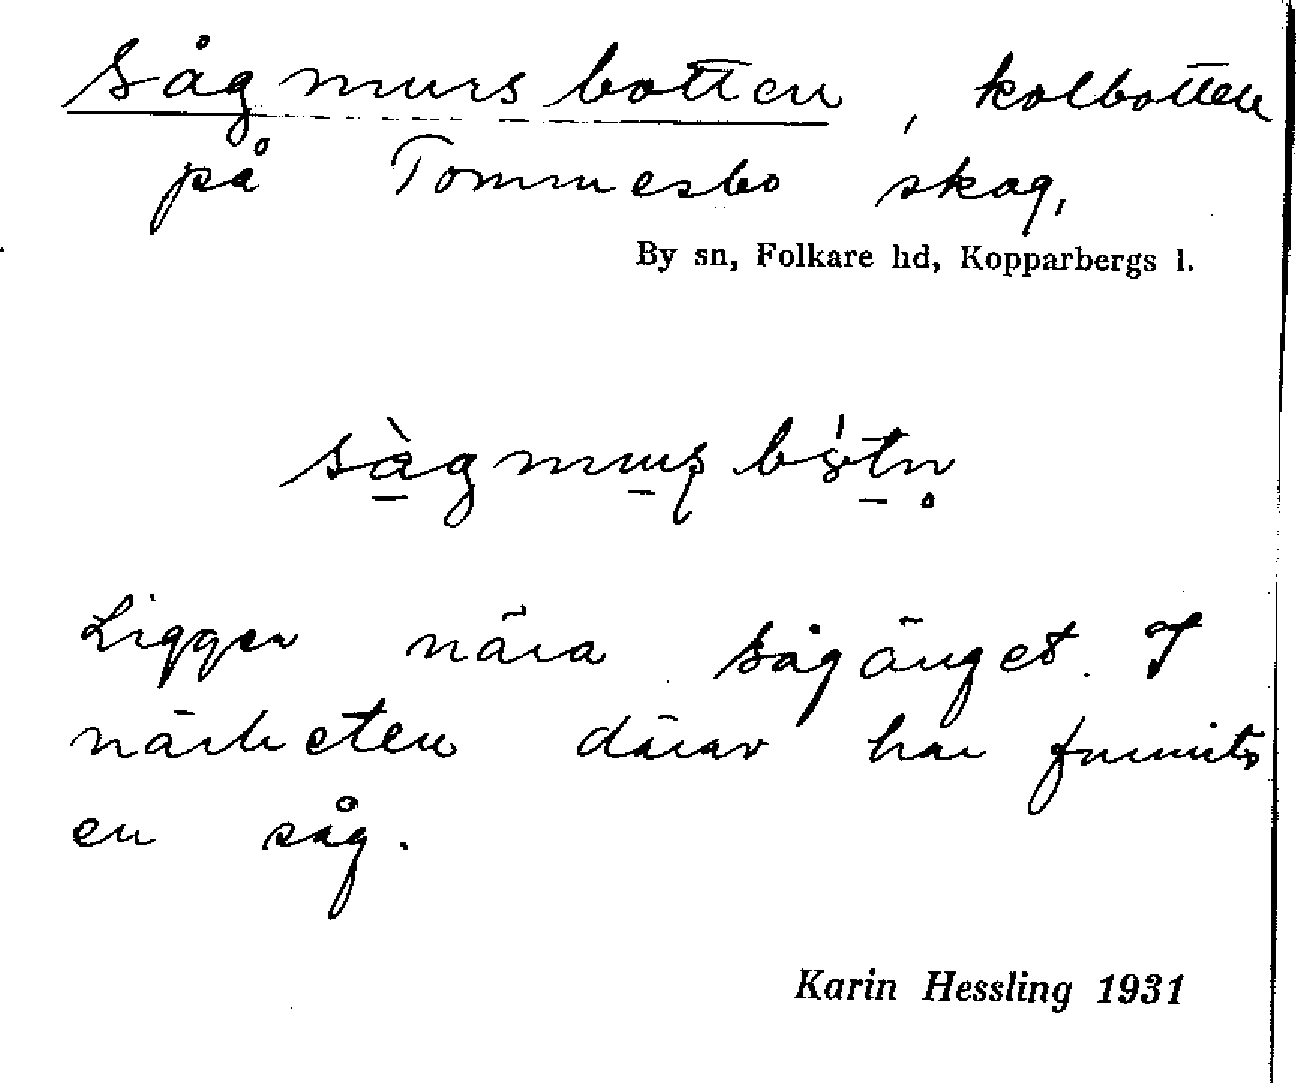 Sågmursbotten, kolbotten
på Tommesbo skog,
By sn, Folkare hd, Kopparbergs l.
Ligger nära Sågänget. I
närheten därav har funnits
en såg.
Karin Hessling 1931